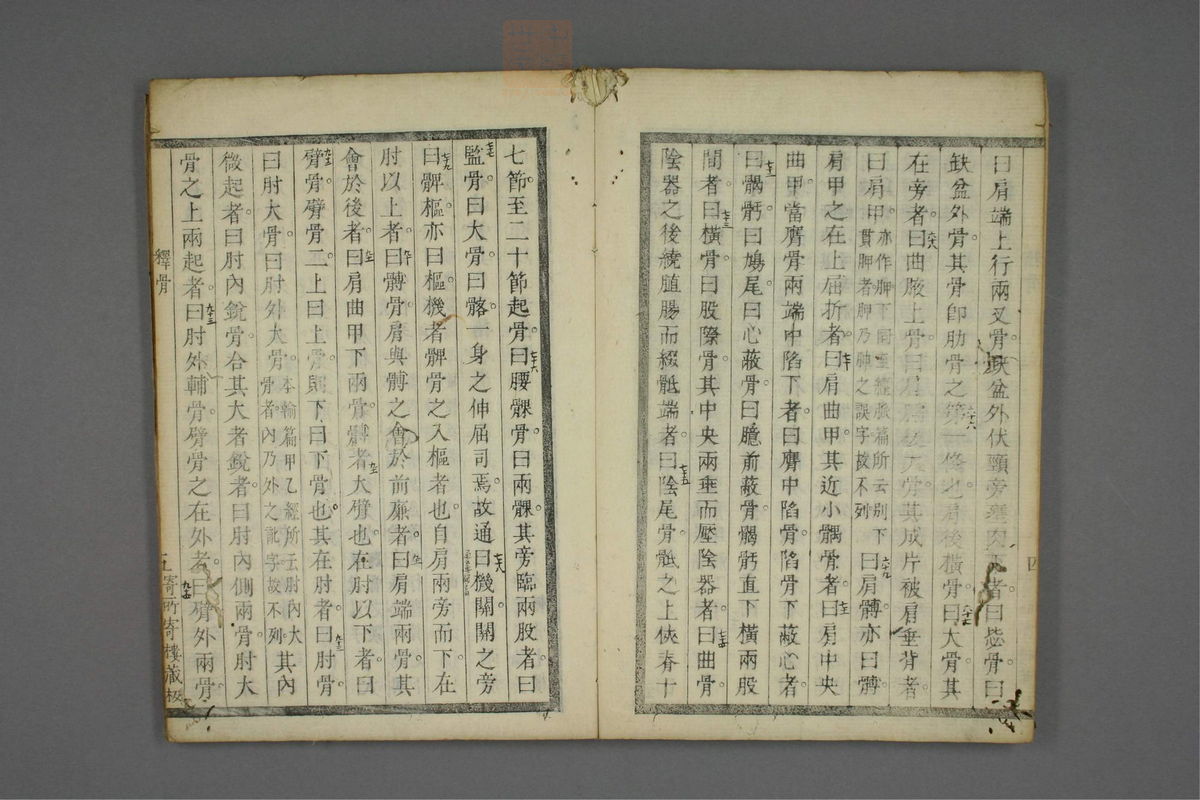 曰肩端上行兩叉骨缺盆外伏
缺盆外骨其骨卽肋骨之第一條也肩後橫骨曰大骨其
在旁者曰曲腋上骨曰肩後大骨其成片被肩垂背者
曰肩甲亦作胛下同至經脈篇所云別下
貫胛者胛乃胂之誤字故不列曰肩髆亦曰髆
肩甲之在上屈折者曰肩曲甲其近小髃骨者曰肩中央
曲甲當膺骨兩端中陷下者曰膺中陷骨陷骨下蔽心者
曰𩩲骬曰鳩尾曰心蔽骨曰臆前蔽骨𩩲骬直下橫兩股
間者曰橫骨曰股際骨其中央兩垂而壓陰器者曰曲骨
陰器之後繞膣腸而綴骶端者曰陰尾骨骶之上俠脊十
四
七節至二十節起骨曰腰髁骨曰兩髁其旁臨兩股者曰
監骨曰大骨曰髂一身之伸屈司焉故通曰機關關之旁
曰髀樞亦曰樞機者髀骨之入樞者也自肩兩旁而下在
肘以上者曰髆骨肩與髆之會於前廉者曰肩端兩骨其
會於後者曰肩曲甲下兩骨髆者大臂也在肘以下者曰
臂骨臂骨二上曰上骨下曰下骨也其在肘者曰肘骨
曰肘大骨曰肘外大骨本輸篇甲乙經所云肘內大
骨者內乃外之訛字故不列其內
微起者曰肘內銳骨合其大者銳者曰肘內側兩骨肘大
骨之上兩起者曰肘外輔骨臂骨之在外者曰臂外兩骨
釋骨
五
寄所寄樓藏板